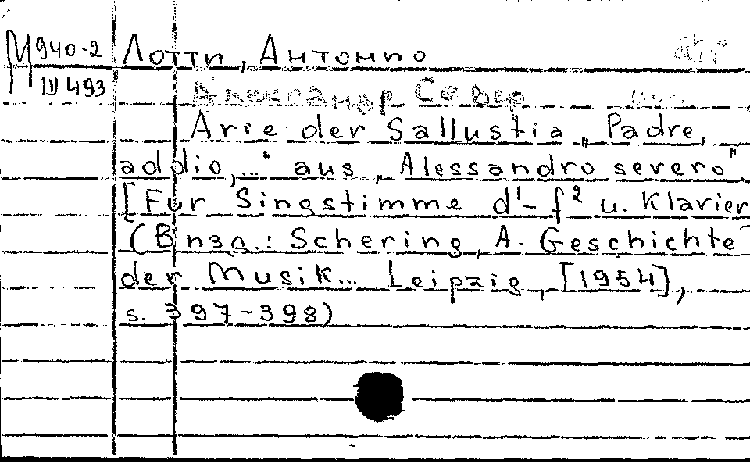 М 940-2 Лотти, Антонио
III 493
Александр Север
Arie der Sallustia „Padre,
addio,..." aus „Alessandro severo".
[Für Singstimme d¹-f² u. Klavier
(В изд.: Schering, A. Geschichte
der Musik... Leipzig, [1954],
s. 397-398)